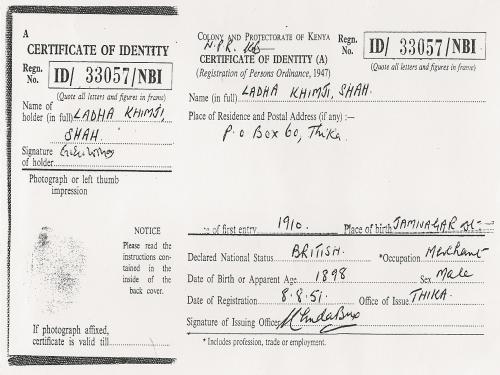 A
CERTIFICATE OF IDENTITY
Regn. No. ID/ 33057/NBI
(Quote all letters and figures in frame)
Name of holder (in full) LADHA KHIMJI, SHAH.
Signature of holder
Photograph or left thumb impression
NOTICE
Please read the instructions contained in the inside of the back cover.
If photograph affixed, certificate is valid till
COLONY AND PROTECTORATE OF KENYA
N.P.R.
CERTIFICATE OF IDENTITY (A)
(Registration of Persons Ordinance, 1947)
Regn. No. ID/ 33057/NBI
(Quote all letters and figures in frame)
Name (in full) LADHA KHIMJI, SHAH.
Place of Residence and Postal Address (if any) :—
P.O Box 60, Thika.
of first entry 1910. Place of birth JAMNAGAR
Declared National Status BRITISH. *Occupation Merchant
Date of Birth or Apparent Age 1898 Sex Male
Date of Registration 8.8.51. Office of Issue THIKA.
Signature of Issuing Officer
* Includes profession, trade or employment.